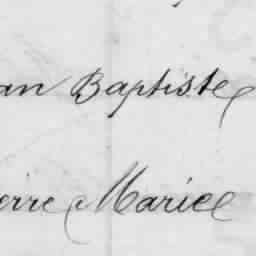 an Baptiste
erre Marie